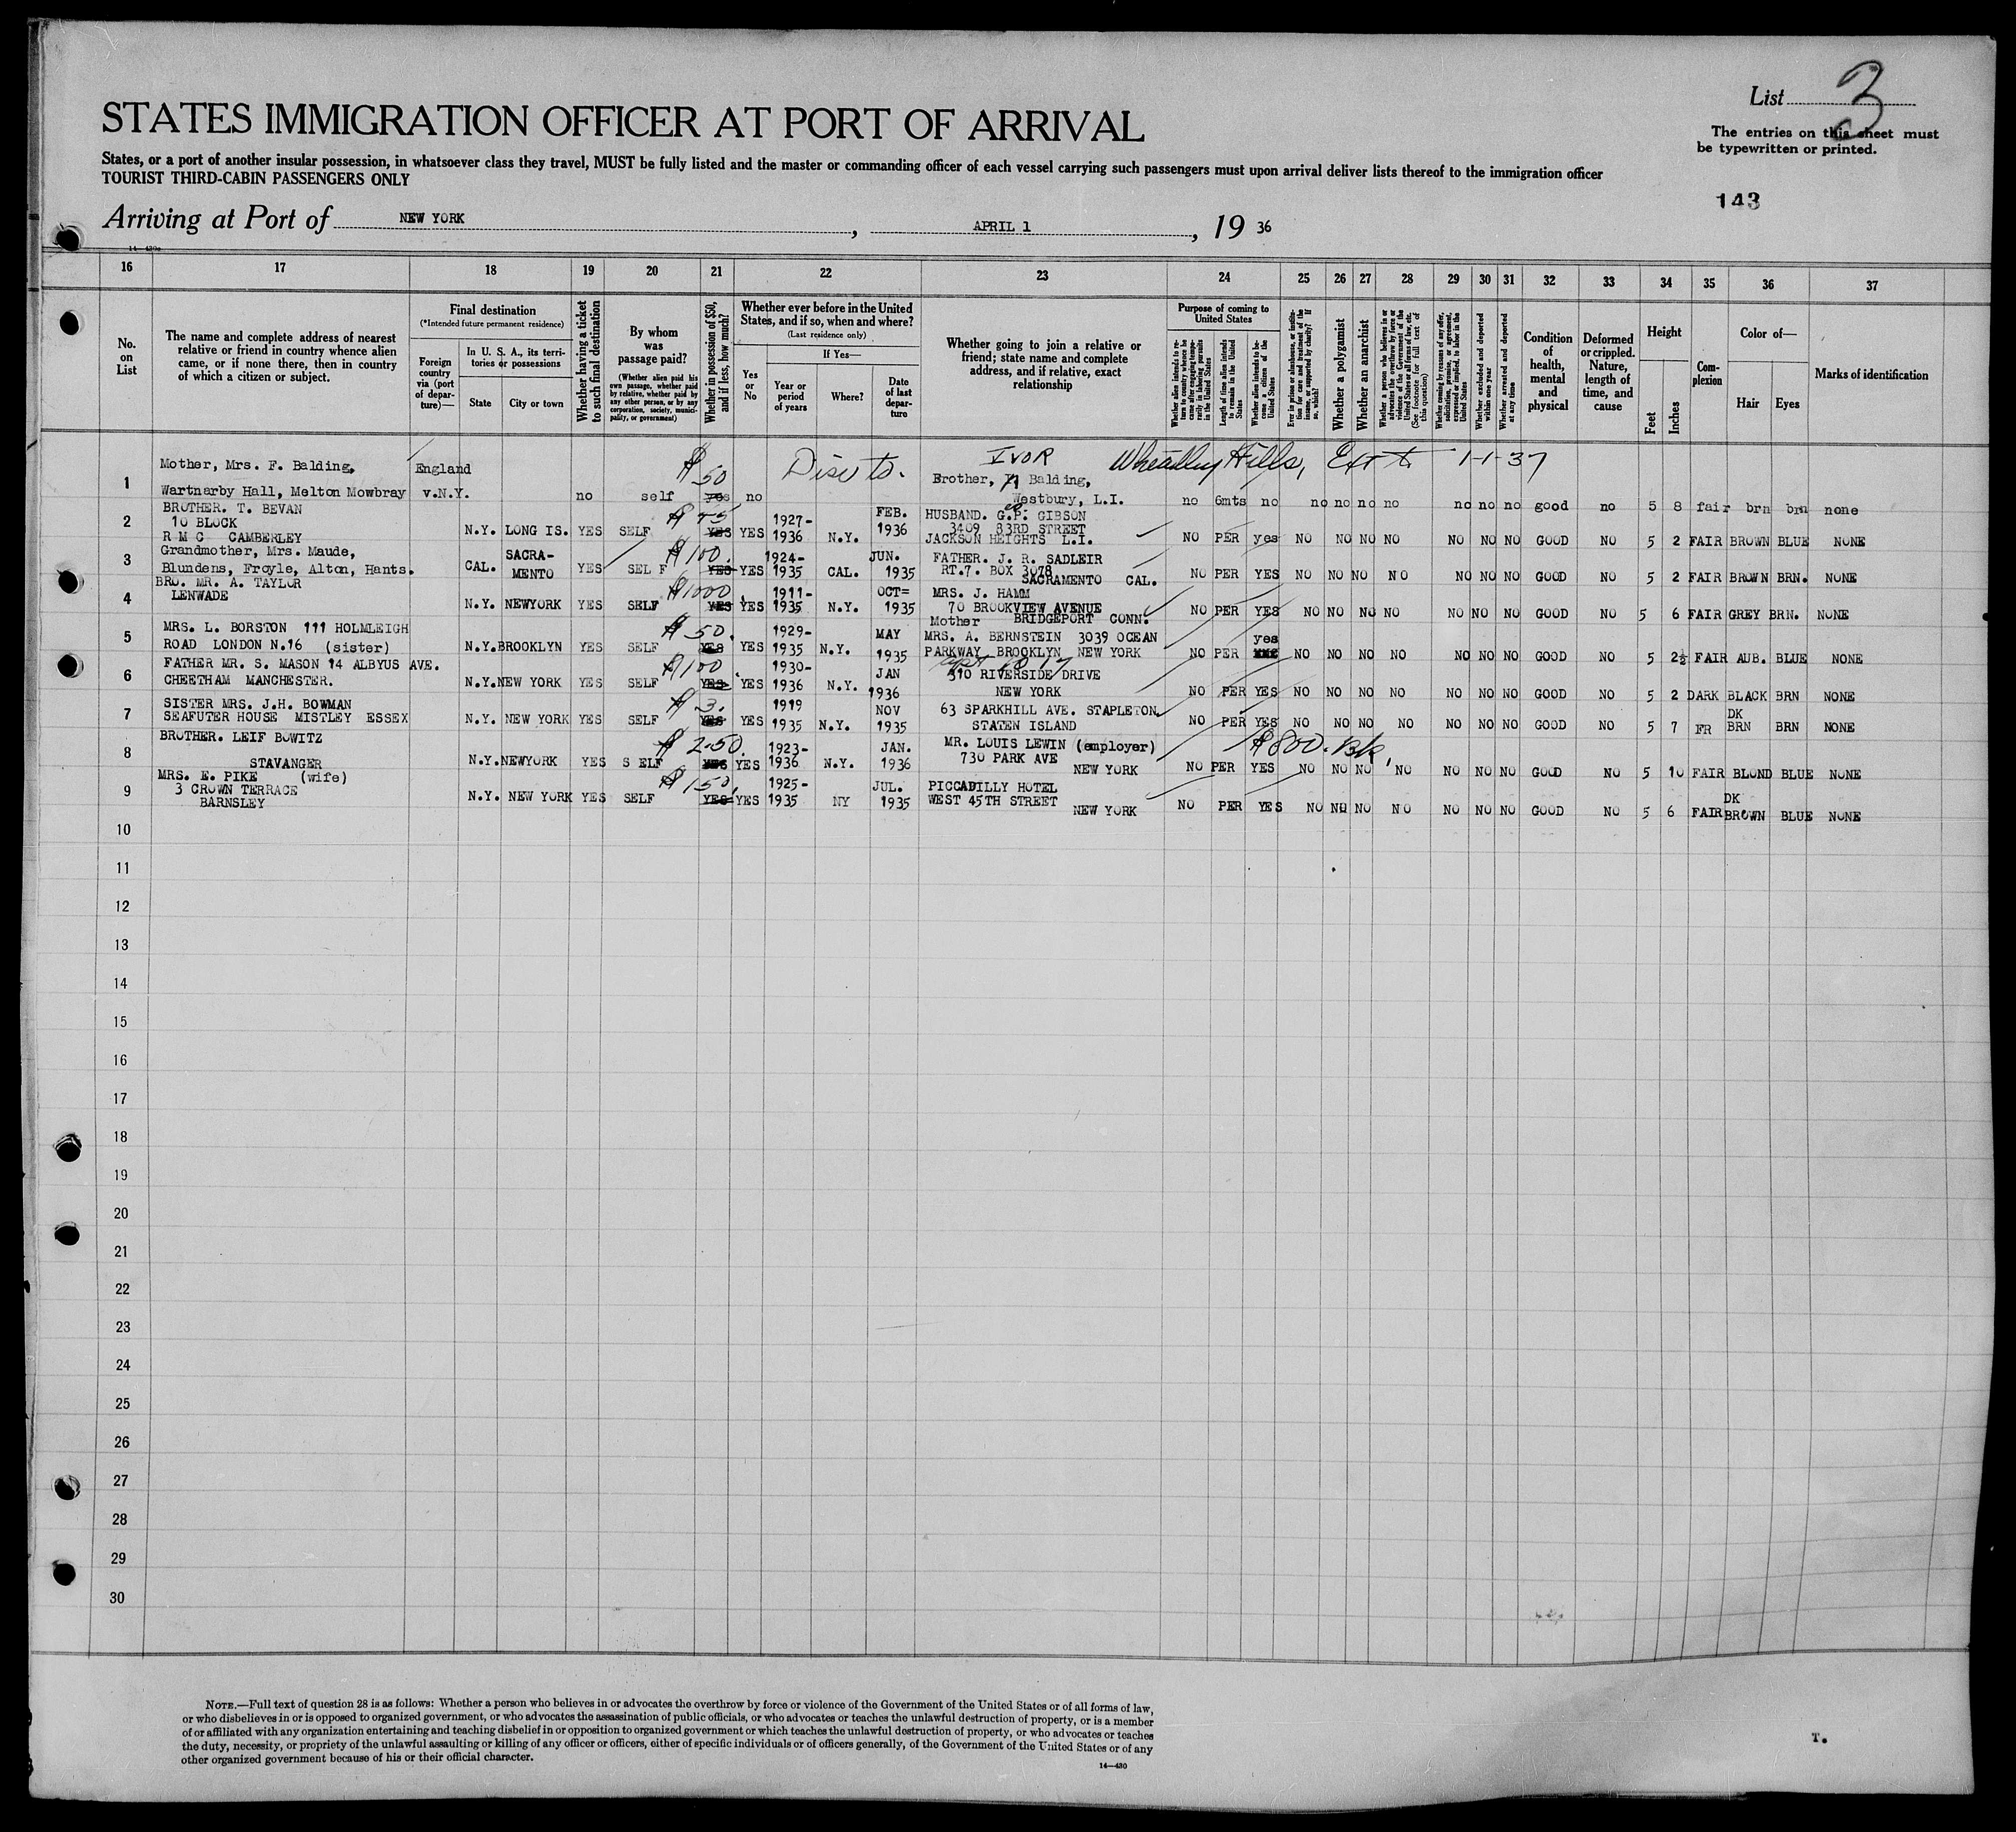 List 3
STATES IMMIGRATION OFFICER AT PORT OF ARRIVAL
The entries on this sheet must
be typewritten or printed.
States, or a port of another insular possession, in whatsoever class they travel, MUST be fully listed and the master or commanding officer of each vessel carrying such passengers must upon arrival deliver lists thereof to the immigration officer
TOURIST THIRD-CABIN PASSENGERS ONLY
143
Arriving at Port of NEW YORK, APRIL 1, 19 36
16 17 18 19 20 21 22 23 24 25 26 27 28 29 30 31 32 33 34 35 36 37
No. on List
The name and complete address of nearest relative or friend in country whence alien came, or if none there, then in country of which a citizen or subject.
Final destination
(*Intended future permanent residence)
Foreign country via (port of departure)—
In U. S. A., its territories or possessions
State City or town
Whether having a ticket to such final destination
By whom was passage paid?
(Whether alien paid his own passage, whether paid by relative, whether paid by any other person, or by any corporation, society, municipality, or government)
Whether in possession of $50, and if less, how much?
Whether ever before in the United States, and if so, when and where?
(Last residence only)
Yes or No
If Yes—
Year or period of years
Where?
Date of last departure
Whether going to join a relative or friend; state name and complete address, and if relative, exact relationship
Purpose of coming to United States
Whether alien intends to return to country whence he came after engaging temporarily in laboring pursuits in the United States
Length of time alien intends to remain in the United States
Whether alien intends to become a citizen of the United States
Ever in prison or almshouse, or institution for care and treatment of the insane, or supported by charity? If so, which?
Whether a polygamist
Whether an anarchist
Whether a person who believes in or advocates the overthrow by force or violence of the Government of the United States or all forms of law, etc. (See footnote for full text of this question)
Whether coming by reasons of any offer, solicitation, promise, or agreement, expressed or implied, to labor in the United States
Whether excluded and deported within one year
Whether arrested and deported at any time
Condition of health, mental and physical
Deformed or crippled. Nature, length of time, and cause
Height
Feet Inches
Complexion
Color of—
Hair Eyes
Marks of identification
1 Mother, Mrs. F. Balding, Wartnaby Hall, Melton Mowbray England v.N.Y. no self $50 yes no Brother, IVOR Balding, Westbury, L.I. Wheatley Hills, Ext to 1-1-37 no 6mts no no no no no no no no good no 5 8 fair brn brn none
2 BROTHER. T. BEVAN 10 BLOCK R M C CAMBERLEY N.Y. LONG IS. YES SELF YES YES 1927-1936 N.Y. FEB. 1936 HUSBAND. G.P. GIBSON 3409 83RD STREET JACKSON HEIGHTS L.I. NO PER yes NO NO NO NO NO NO NO GOOD NO 5 2 FAIR BROWN BLUE NONE
3 Grandmother, Mrs. Maude, Blundens, Froyle, Alton, Hants. CAL. SACRA-MENTO YES SELF $100. YES YES 1924-1935 CAL. JUN. 1935 FATHER. J. R. SADLEIR RT.7. BOX 3078 SACRAMENTO CAL. NO PER YES NO NO NO NO NO NO NO GOOD NO 5 2 FAIR BROWN BRN. NONE
4 BRO. MR. A. TAYLOR LENWADE N.Y. NEWYORK YES SELF $1000. YES YES 1911-1935 N.Y. OCT= 1935 MRS. J. HAMM 70 BROOKVIEW AVENUE BRIDGEPORT CONN. NO PER YES NO NO NO NO NO NO NO GOOD NO 5 6 FAIR GREY BRN. NONE
5 MRS. L. BORSTON 111 HOLMLEIGH ROAD LONDON N.16 (sister) N.Y. BROOKLYN YES SELF $50. YES YES 1929-1935 N.Y. MAY 1935 Mother MRS. A. BERNSTEIN 3039 OCEAN PARKWAY BROOKLYN NEW YORK NO PER yes NO NO NO NO NO NO NO GOOD NO 5 2½ FAIR AUB. BLUE NONE
6 FATHER MR. S. MASON 14 ALBYUS AVE. CHEETHAM MANCHESTER. N.Y. NEW YORK YES SELF $100. YES YES 1930-1936 N.Y. JAN 1936 310 RIVERSIDE DRIVE NEW YORK NO PER YES NO NO NO NO NO NO NO GOOD NO 5 2 DARK BLACK BRN NONE
7 SISTER MRS. J.H. BOWMAN SEAFUTER HOUSE MISTLEY ESSEX N.Y. NEW YORK YES SELF $3. YES YES 1919 1935 N.Y. NOV 1935 63 SPARKHILL AVE. STAPLETON STATEN ISLAND NO PER YES NO NO NO NO NO NO NO GOOD NO 5 7 FR DK BRN BRN NONE
8 BROTHER. LEIF BOWITZ STAVANGER N.Y. NEWYORK YES SELF $250. YES YES 1923-1936 N.Y. JAN. 1936 MR. LOUIS LEWIN (employer) 730 PARK AVE NEW YORK $800. Bk, NO PER YES NO NO NO NO NO NO NO GOOD NO 5 10 FAIR BLOND BLUE NONE
9 MRS. E. PIKE (wife) 3 CROWN TERRACE BARNSLEY N.Y. NEW YORK YES SELF $150. YES YES 1925-1935 NY JUL. 1935 PICCADILLY HOTEL WEST 45TH STREET NEW YORK NO PER YES NO NO NO NO NO NO NO GOOD NO 5 6 FAIR DK BROWN BLUE NONE
10
11
12
13
14
15
16
17
18
19
20
21
22
23
24
25
26
27
28
29
30
NOTE.—Full text of question 28 is as follows: Whether a person who believes in or advocates the overthrow by force or violence of the Government of the United States or of all forms of law,
or who disbelieves in or is opposed to organized government, or who advocates the assassination of public officials, or who advocates or teaches the unlawful destruction of property, or is a member
of or affiliated with any organization entertaining and teaching disbelief in or opposition to organized government or which teaches the unlawful destruction of property, or who advocates or teaches
the duty, necessity, or propriety of the unlawful assaulting or killing of any officer or officers, either of specific individuals or of officers generally, of the Government of the United States or of any
other organized government because of his or their official character.
14—430
T.